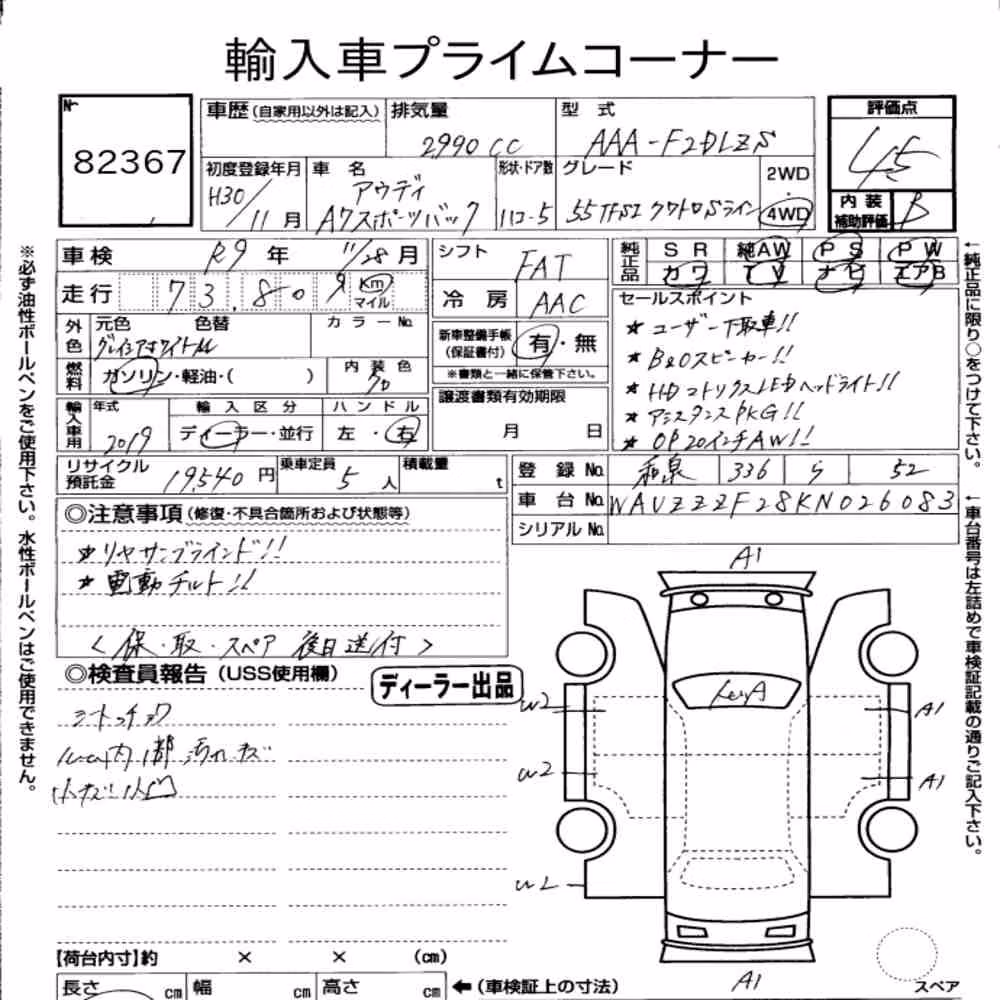 輸入車プライムコーナー
№
82367
車歴(自家用以外は記入)
排気量
2990 CC
型 式
AAA-F2DLZS
評価点
4.5
内装
補助評価
B
初度登録年月
H30/11月
車 名
アウディ
A7スポーツバック
形状・ドア数
ハコ-5
グレード
55TFSI クワトロSライン
2WD
・
4WD
車検 R9年 11/28月
走行 73.809 Km
マイル
シフト FAT
冷房 AAC
純正品
SR 純AW PS PW
カワ TV ナビ エアB
外色
元色 色替 カラーNo.
グレイシアホワイトM
燃料
ガソリン・軽油・( )
内装色
クロ
新車整備手帳
(保証書付)
有・無
※書類と一緒に保管下さい。
セールスポイント
★ユーザー下取車!!
★B&Oスピーカー!!
★HDマトリクスLEDヘッドライト!!
★アシスタンスPKG!!
★OP20インチAW!!
輸入車用
年式
2019
輸入区分
ディーラー・並行
ハンドル
左・右
譲渡書類有効期限
月 日
リサイクル
預託金
19,540円
乗車定員
5人
積載量
t
登録No. 和泉 336 ラ 52
車台No. WAUZZZF28KN026083
シリアルNo.
◎注意事項(修復・不具合箇所および状態等)
★リヤサンブラインド!!
★電動チルト!!
<保・取・スペア 後日送付>
◎検査員報告(USS使用欄)
ディーラー出品
内 部 汚れ キズ
小キズ 小凹
A1
W2
W2
W2
A1
A1
A1
スペア
【荷台内寸】約 × × (cm)
長さ cm 幅 cm 高さ cm
←(車検証上の寸法)
※必ず油性ボールペンをご使用下さい。水性ボールペンはご使用できません。
←純正品に限り○をつけて下さい。
←車台番号は左詰めで車検証記載の通りご記入下さい。